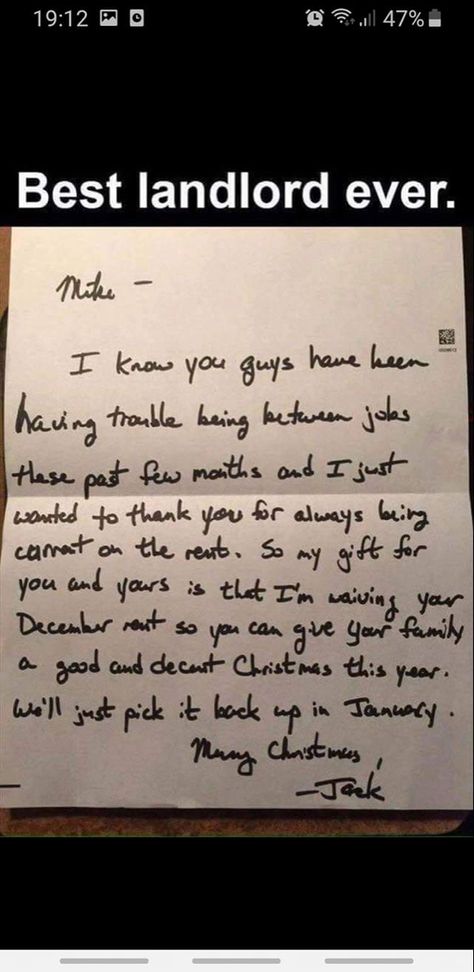 19:12 47%
Best landlord ever.
Mike –
I know you guys have been
having trouble being between jobs
these past few months and I just
wanted to thank you for always being
current on the rent. So my gift for
you and yours is that I'm waiving your
December rent so you can give your family
a good and decent Christmas this year.
We'll just pick it back up in January.
Merry Christmas,
–Jack